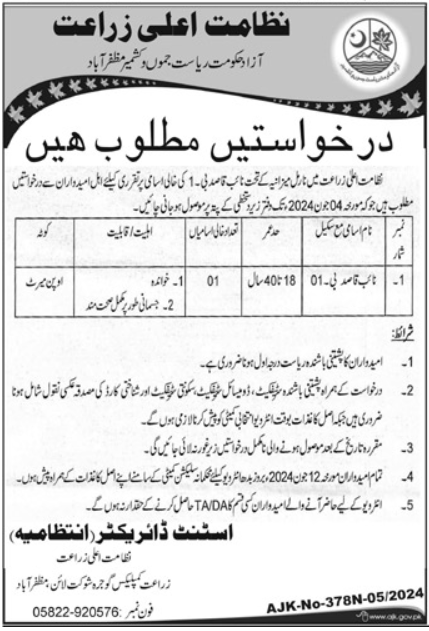 نظامت اعلیٰ زراعت
آزاد حکومت ریاست جموں و کشمیر مظفرآباد
درخواستیں مطلوب ھیں
نظامت اعلیٰ زراعت میں نارمل میزانیہ کے تحت نائب قاصد بی۔1 کی خالی اسامی پر تقرری کیلئے اہل امیدواران سے درخواستیں
مطلوب ہیں جو کہ مورخہ 04 جون 2024ء تک دفتر زیر دستخطی کے پتہ پر موصول ہو جانی چاہئیں۔
نمبر شمار نام اسامی مع سکیل حد عمر تعداد خالی اسامیاں اہلیت/قابلیت کوٹہ
1۔ نائب قاصد بی۔01 18 تا 40 سال 01 1۔ خواندہ اوپن میرٹ
2۔ جسمانی طور پر مکمل صحت مند
شرائط:
1۔ امیدواران کا پشتینی باشندہ ریاست درجہ اول ہونا ضروری ہے۔
2۔ درخواست کے ہمراہ پشتینی باشندہ سرٹیفکیٹ، ڈومیسائل سرٹیفکیٹ، سکونتی سرٹیفکیٹ اور شناختی کارڈ کی مصدقہ عکسی نقول شامل ہونا
ضروری ہیں جبکہ اصل کاغذات بوقت انٹرویو انتخابی کمیٹی کو پیش کرنا لازمی ہوں گے۔
3۔ مقررہ تاریخ کے بعد موصول ہونے والی نامکمل درخواستیں زیر غور نہ لائی جائیں گی۔
4۔ تمام امیدواران مورخہ 12 جون 2024ء بروز بدھ انٹرویو کیلئے محکمانہ سلیکشن کمیٹی کے سامنے اپنے اصل کاغذات کے ہمراہ پیش ہوں۔
5۔ انٹرویو کے لیے حاضر آنے والے امیدواران کسی قسم کا TA/DA حاصل کرنے کے حقدار نہ ہوں گے۔
اسسٹنٹ ڈائریکٹر (انتظامیہ)
نظامت اعلیٰ زراعت
زراعت کمپلیکس گوجرہ شوکت لائن، مظفرآباد
فون نمبر: 05822-920576
AJK-No-378N-05/2024
www.ajk.gov.pk